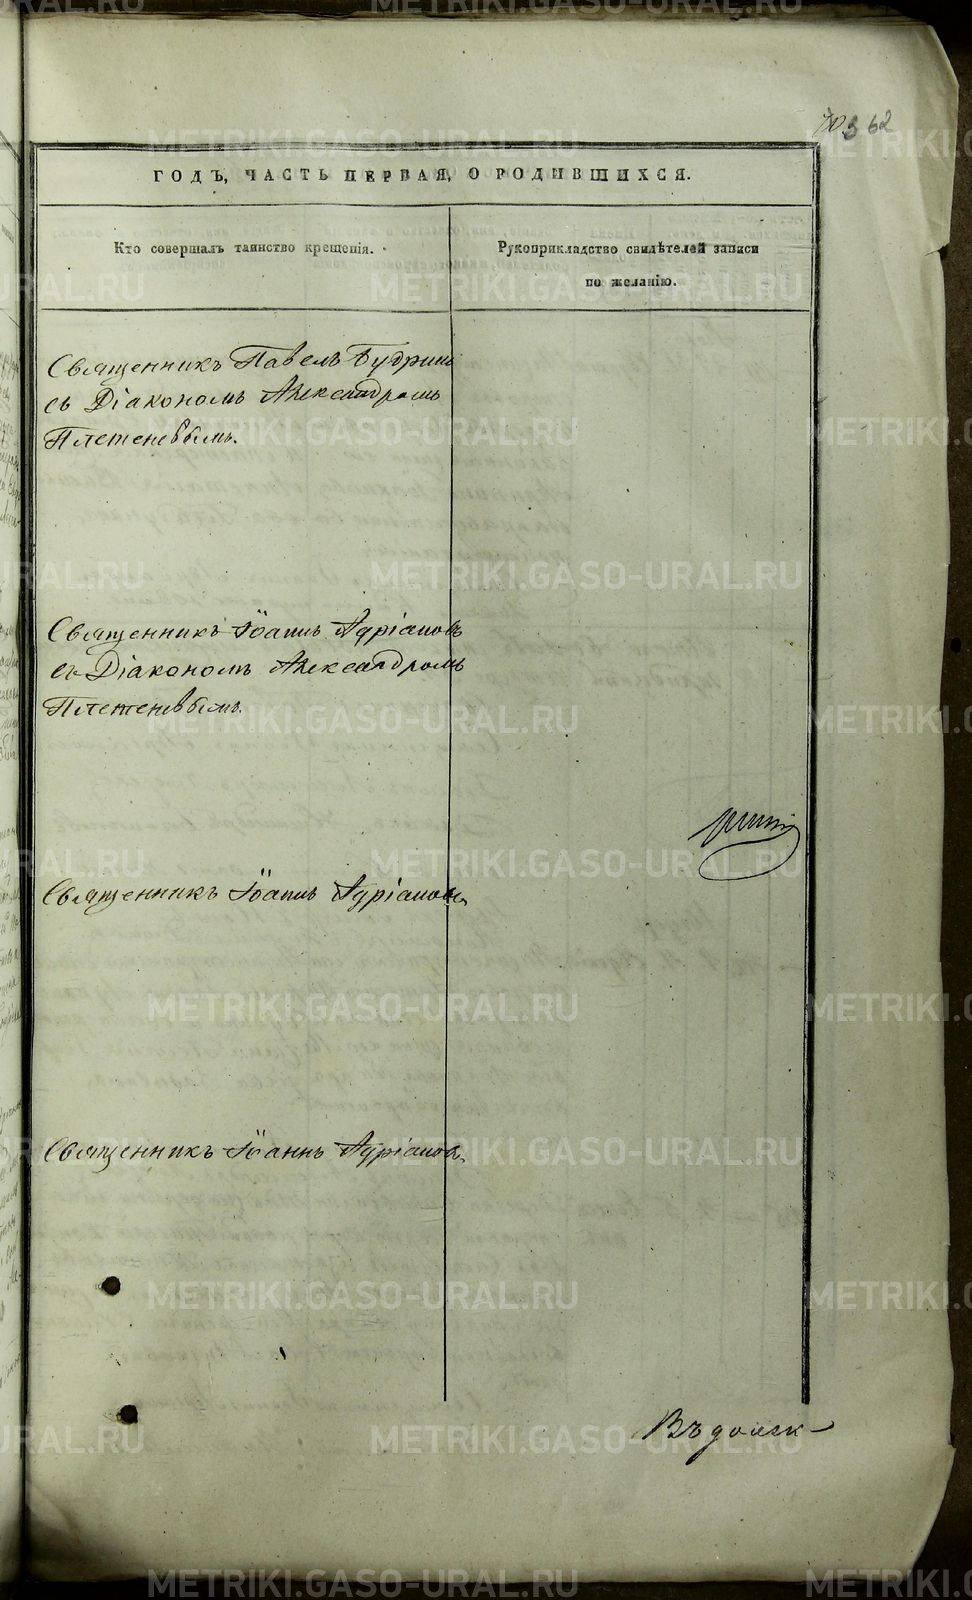 362
ГОДЪ, ЧАСТЬ ПЕРВАЯ, О РОДИВШИХСЯ.
Кто совершалъ таинство крещенія.
Рукоприкладство свидѣтелей записи
по желанію.
Священникъ Павелъ
съ Діакономъ Александромъ
Плетеневымъ.
Священникъ Іоаннъ Адріановъ
съ Діакономъ Александромъ
Плетеневымъ.
Священникъ Іоаннъ Адріановъ
Священникъ Іоаннъ Адріановъ
METRIKI.GASO-URAL.RU